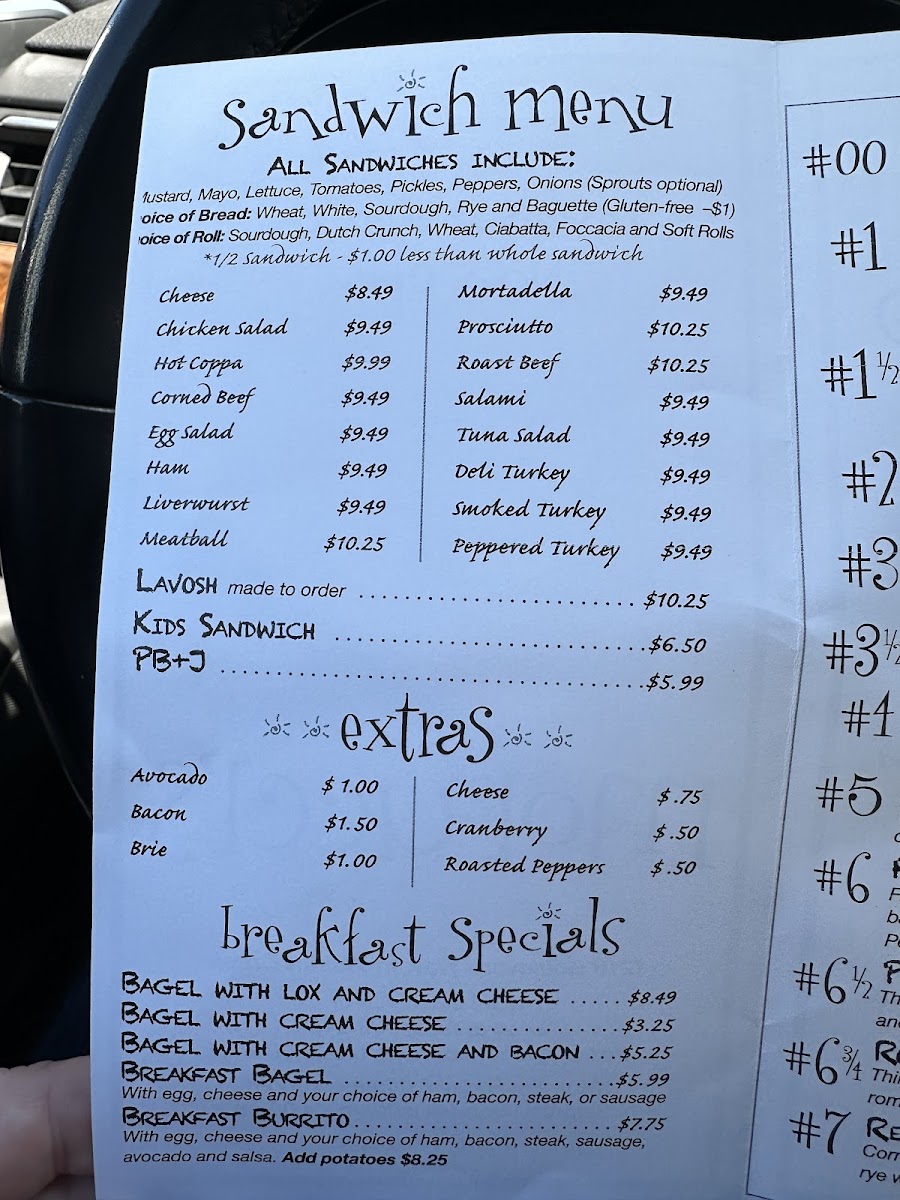 sandwich menu
All Sandwiches include:
Mustard, Mayo, Lettuce, Tomatoes, Pickles, Peppers, Onions (Sprouts optional)
oice of Bread: Wheat, White, Sourdough, Rye and Baguette (Gluten-free –$1)
oice of Roll: Sourdough, Dutch Crunch, Wheat, Ciabatta, Foccacia and Soft Rolls
*1/2 Sandwich - $1.00 less than whole sandwich
Cheese $8.49
Chicken Salad $9.49
Hot Coppa $9.99
Corned Beef $9.49
Egg Salad $9.49
Ham $9.49
Liverwurst $9.49
Meatball $10.25
Mortadella $9.49
Prosciutto $10.25
Roast Beef $10.25
Salami $9.49
Tuna Salad $9.49
Deli Turkey $9.49
Smoked Turkey $9.49
Peppered Turkey $9.49
Lavosh made to order $10.25
Kids Sandwich $6.50
PB+J $5.99
extras
Avocado $ 1.00
Bacon $1.50
Brie $1.00
Cheese $ .75
Cranberry $ .50
Roasted Peppers $ .50
breakfast specials
Bagel with lox and cream cheese ..... $8.49
Bagel with cream cheese $3.25
Bagel with cream cheese and bacon ... $5.25
Breakfast Bagel $5.99
With egg, cheese and your choice of ham, bacon, steak, or sausage
Breakfast Burrito $7.75
With egg, cheese and your choice of ham, bacon, steak, sausage,
avocado and salsa. Add potatoes $8.25
#00
#1
#1 1/2
#2
#3
#3 1/2
#4
#5
#6
#6 1/2
Th
an
#6 3/4
Thi
rom
#7 Re
Corr
rye w